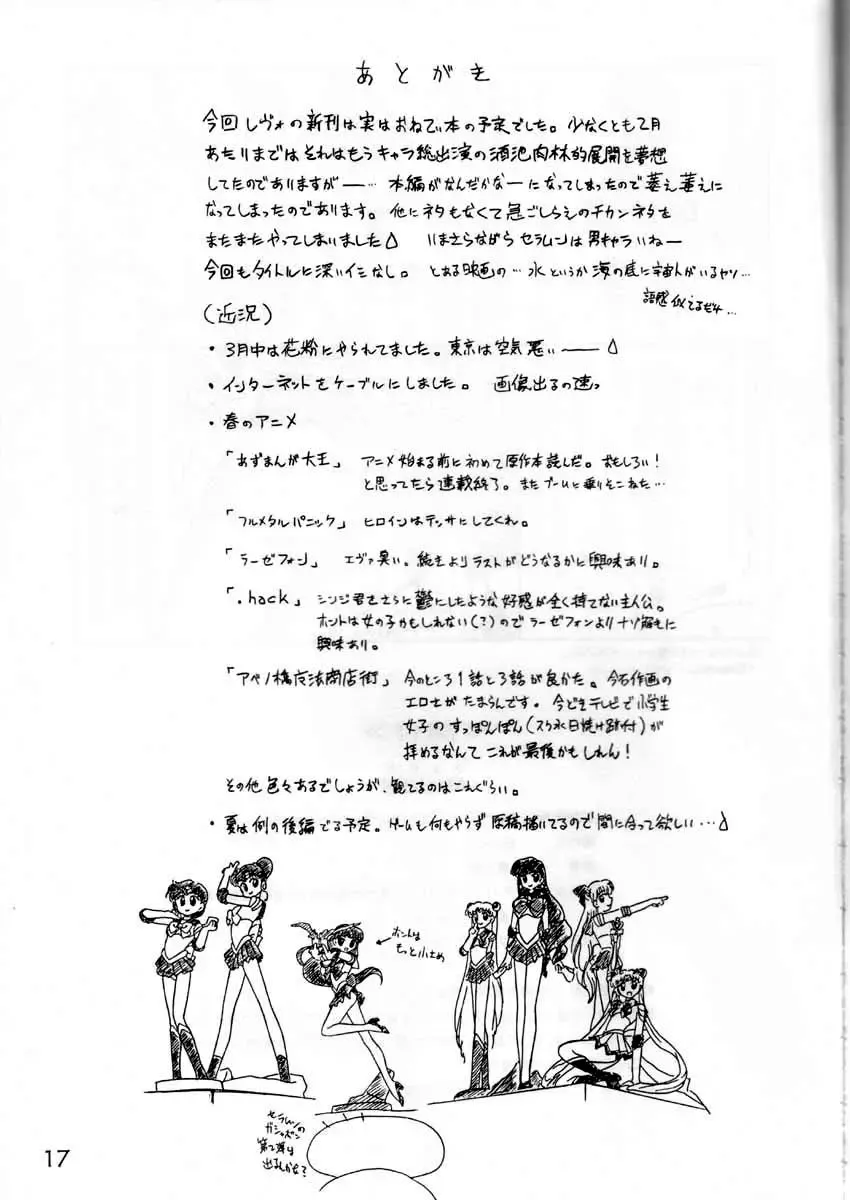 あとがき
今回レヴォの新刊は実はおねてぃ本の予定でした。少なくとも2月
あたりまではそれはもうキャラ総出演の酒池肉林的展開を夢想
してたのでありますがー…本編がなんだかなーになってしまったので萎え萎えに
なってしまったのであります。他にネタもなくて急ごしらえのチカンネタを
またまたやってしまいました いまさらながらセラムンは男キャラいねー
今回もタイトルに深いイミなし。とある映画の…水というか海の底に宇宙人がいるヤツ…
語感似てるだけ…
(近況)
・3月中は花粉にやられてました。東京は空気悪いー
・インターネットをケーブルにしました。画像出るの速っ
・春のアニメ
「あずまんが大王」アニメ始まる前に初めて原作本読んだ。おもしろい!
と思ってたら連載終了。またブームに乗りそこねた…
「フルメタルパニック」ヒロインはテッサにしてくれ。
「ラーゼフォン」エヴァ臭い。続きよりラストがどうなるかに興味あり。
「.hack」シンジ君をさらに鬱にしたような好感が全く持てない主人公。
ホントは女の子かもしれない(?)のでラーゼフォンよりナゾ解きに
興味あり。
「アベノ橋魔法商店街」今のところ1話と3話が良かった。
その他色々あるでしょうが、観てるのはこれぐらい。
・夏は例の後編でる予定。ゲームも何もやらず原稿描いてるので間に合って欲しい…
ホントは
もっと小さめ
セラムンの
ガシャポン
第2弾は
出るかな?
17